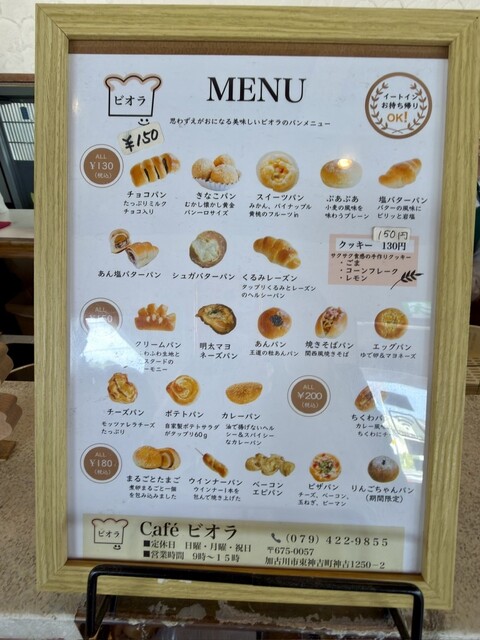 ビオラ
MENU
イートイン
お持ち帰り
OK!
思わずえがおになる美味しいビオラのパンメニュー
¥150
ALL
¥130
(税込)
チョコパン
たっぷりミルク
チョコ入り
きなこパン
むかし懐かし黄金
パン一口サイズ
スイーツパン
みかん、パイナップル
黄桃のフルーツin
ぷあぷあ
小麦の風味を
味わうプレーン
塩バターパン
バターの風味に
ピリッと岩塩
あん塩バターパン
シュガバターパン
くるみレーズン
タップリくるみとレーズン
のヘルシーパン
150円
クッキー 130円
サクサク食感の手作りクッキー
・ごま
・コーンフレーク
・レモン
クリームパン
ふわふわ生地と
スタードの
ーモニー
明太マヨ
ネーズパン
あんパン
王道の粒あんパン
焼きそばパン
関西風焼きそば
エッグパン
ゆで卵&マヨネーズ
チーズパン
モッツァレラチーズ
たっぷり
ポテトパン
自家製ポテトサラダ
がタップリ60g
カレーパン
油で揚げないヘル
シー&スパイシー
なカレーパン
ALL
¥200
(税込)
ちくわパ
カレー風
ちくわに
ALL
¥180
(税込)
まるごとたまご
煮卵まるごと一個
を包み込みました
ウインナーパン
ウインナー1本を
包んで焼き上げた
ベーコン
エピパン
ピザパン
チーズ、ベーコン、
玉ねぎ、ピーマン
りんごちゃんパン
(期間限定)
ビオラ
Café ビオラ
■定休日 日曜・月曜・祝日
■営業時間 9時～15時
(079) 422-9855
〒675-0057
加古川市東神吉町神吉1250-2